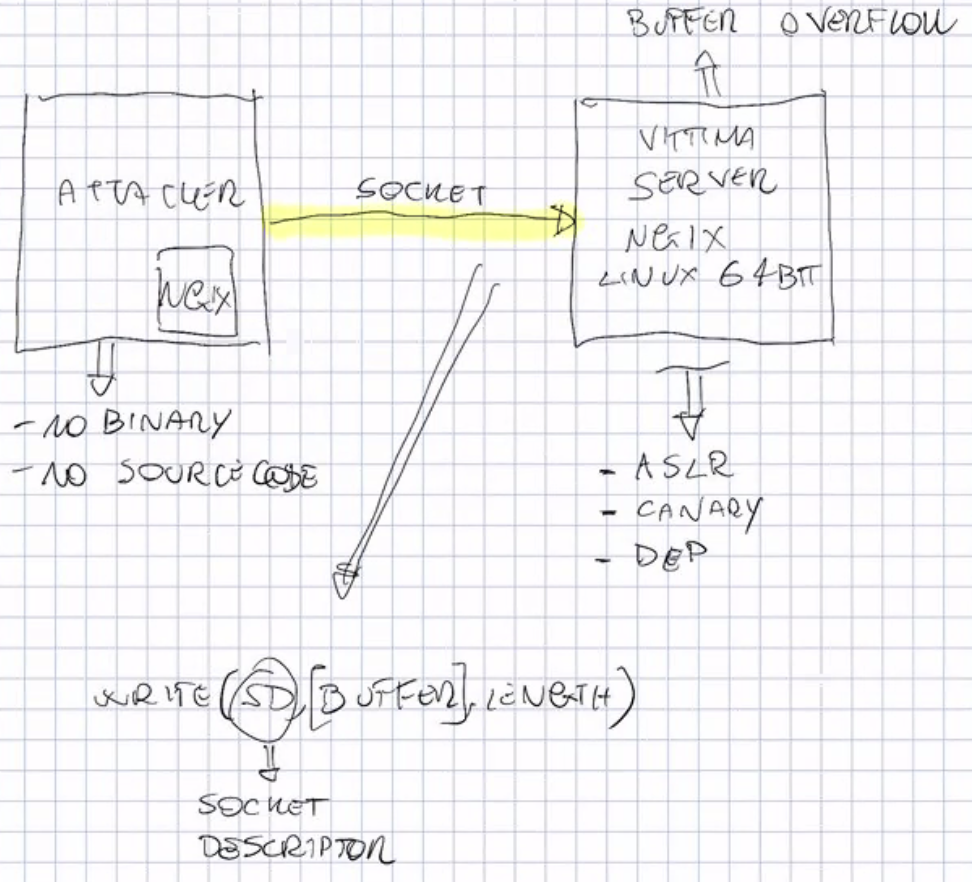 BUFFER OVERFLOW
ATTACKER
NGIX
SOCKET
VITTIMA
SERVER
NGIX
LINUX 64BIT
- NO BINARY
- NO SOURCE CODE
- ASLR
- CANARY
- DEP
WRITE(SD,[BUFFER],LENGTH)
SOCKET
DESCRIPTOR